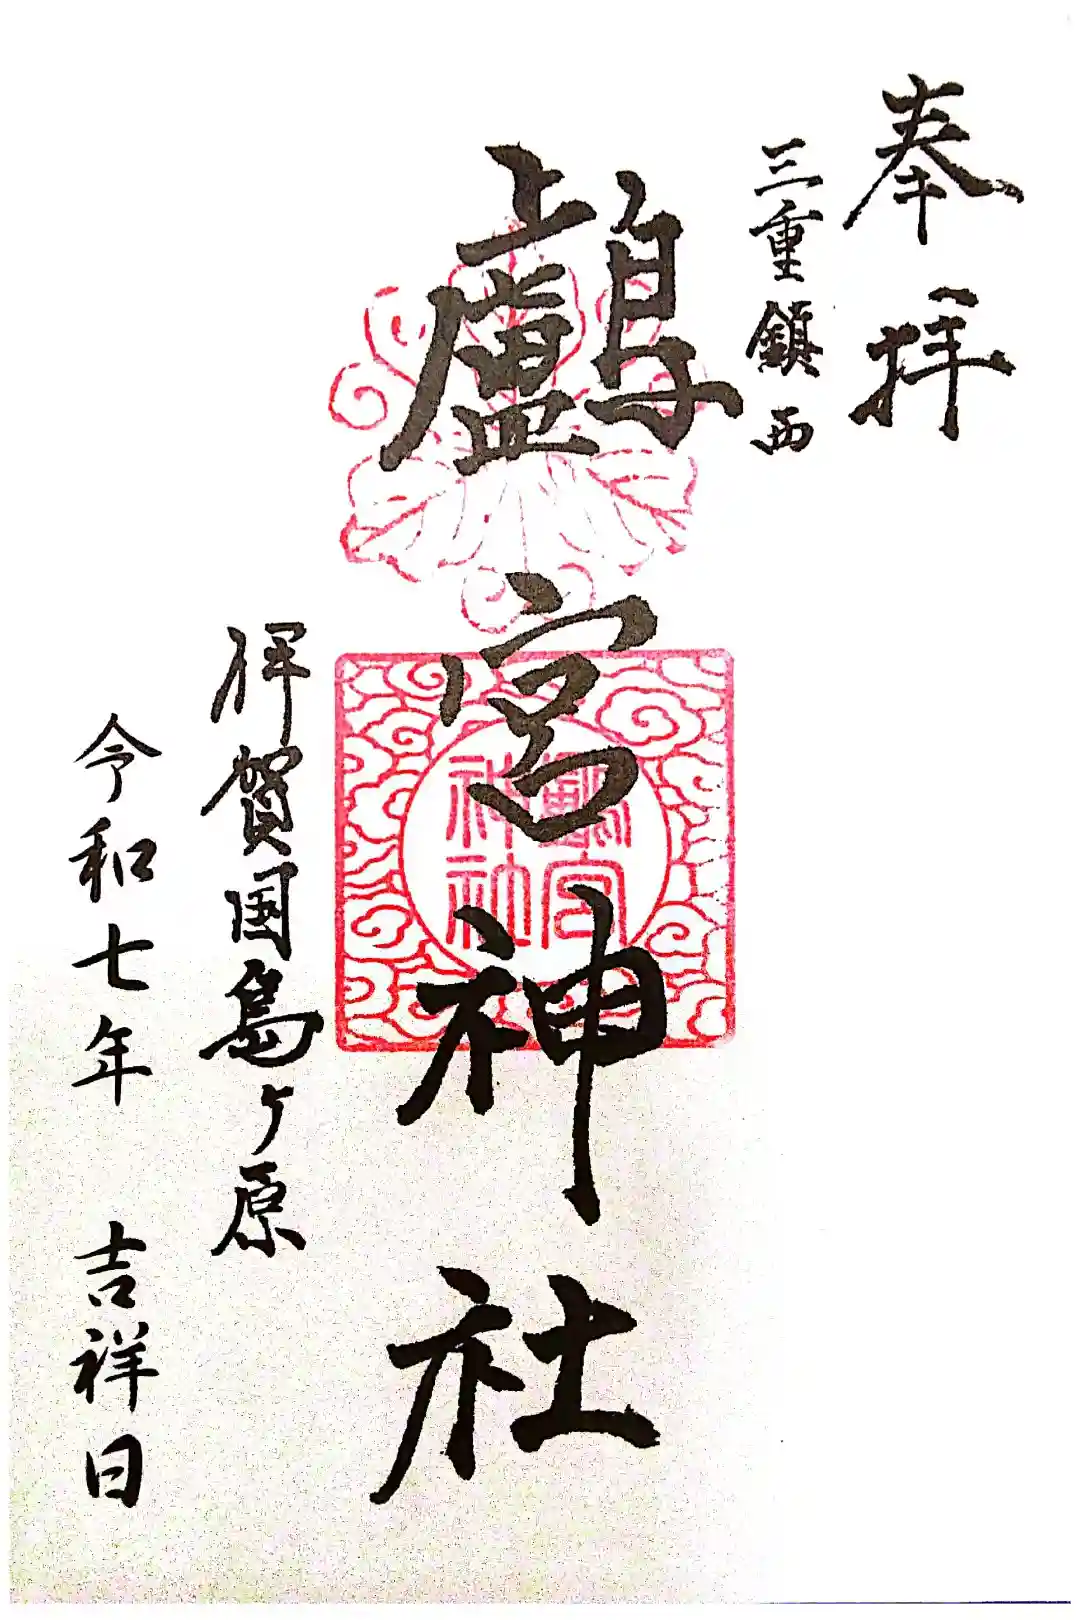 奉拝
三重鎮西
鸕宮神社
鸕宮
神社
伊賀国島ヶ原
令和七年 吉祥日